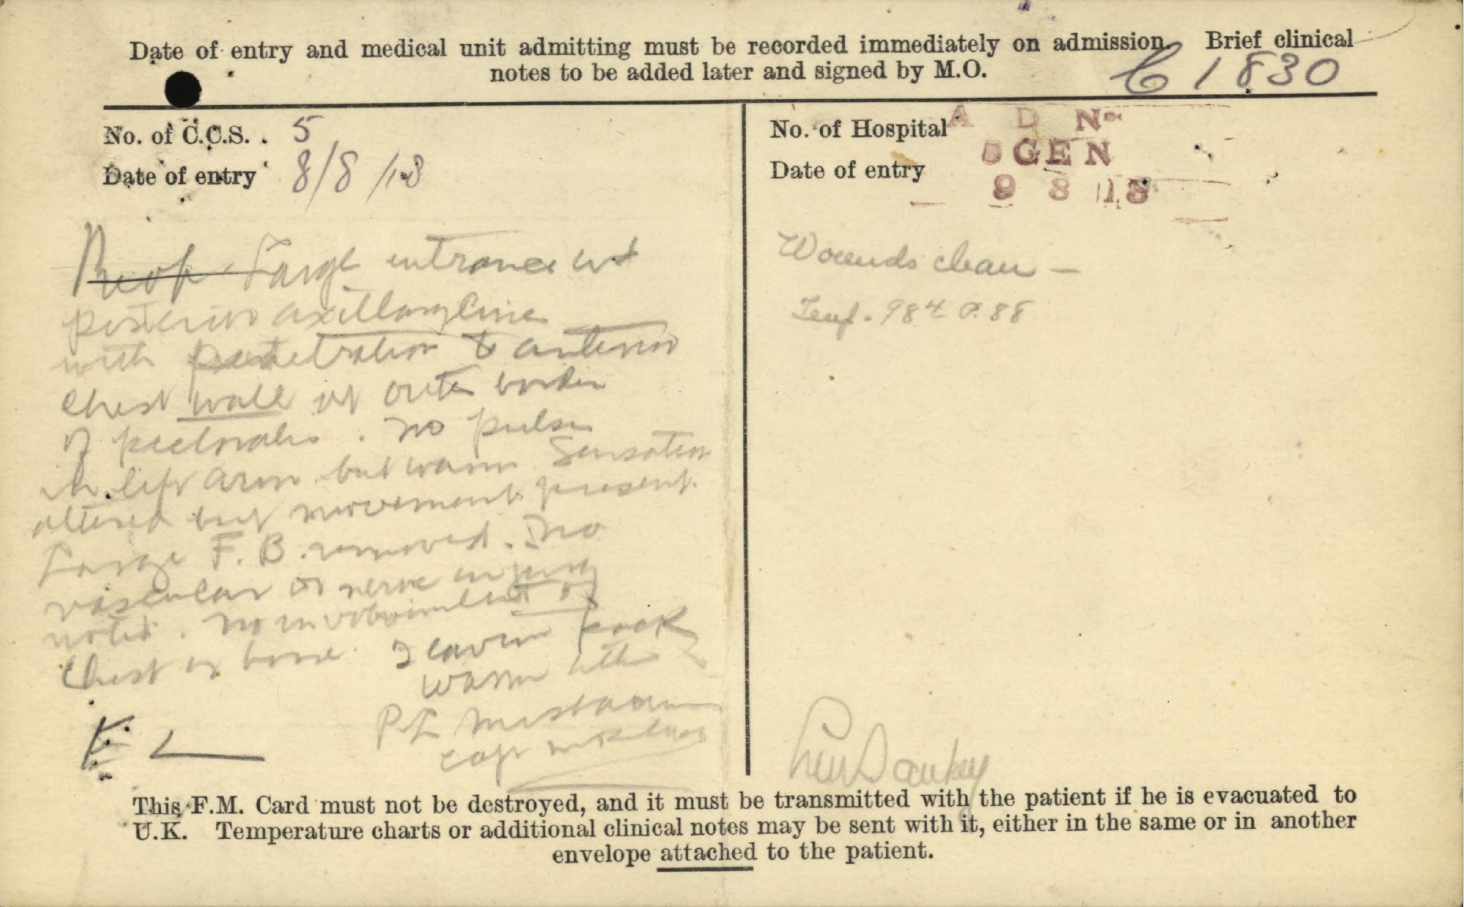 Date of entry and medical unit admitting must be recorded immediately on admission. Brief clinical
notes to be added later and signed by M.O.
C 1830
No. of C.C.S. . 5
Date of entry 8/8/18
Large entrance wd
posterior axillary line
with penetration to anterior
chest wall at outer border
of pectoralis. No pulse
in left arm but warm. Sensation
altered but movement present.
Large F.B. removed. No
vascular or nerve injury
noted. No involvement of
Chest or bone.
warm
P.L.
Capt
L
No. of Hospital A D N
5 GEN
Date of entry 9 8 18
Wounds clean —
Temp. 984 P. 88
This F.M. Card must not be destroyed, and it must be transmitted with the patient if he is evacuated to
U.K. Temperature charts or additional clinical notes may be sent with it, either in the same or in another
envelope attached to the patient.